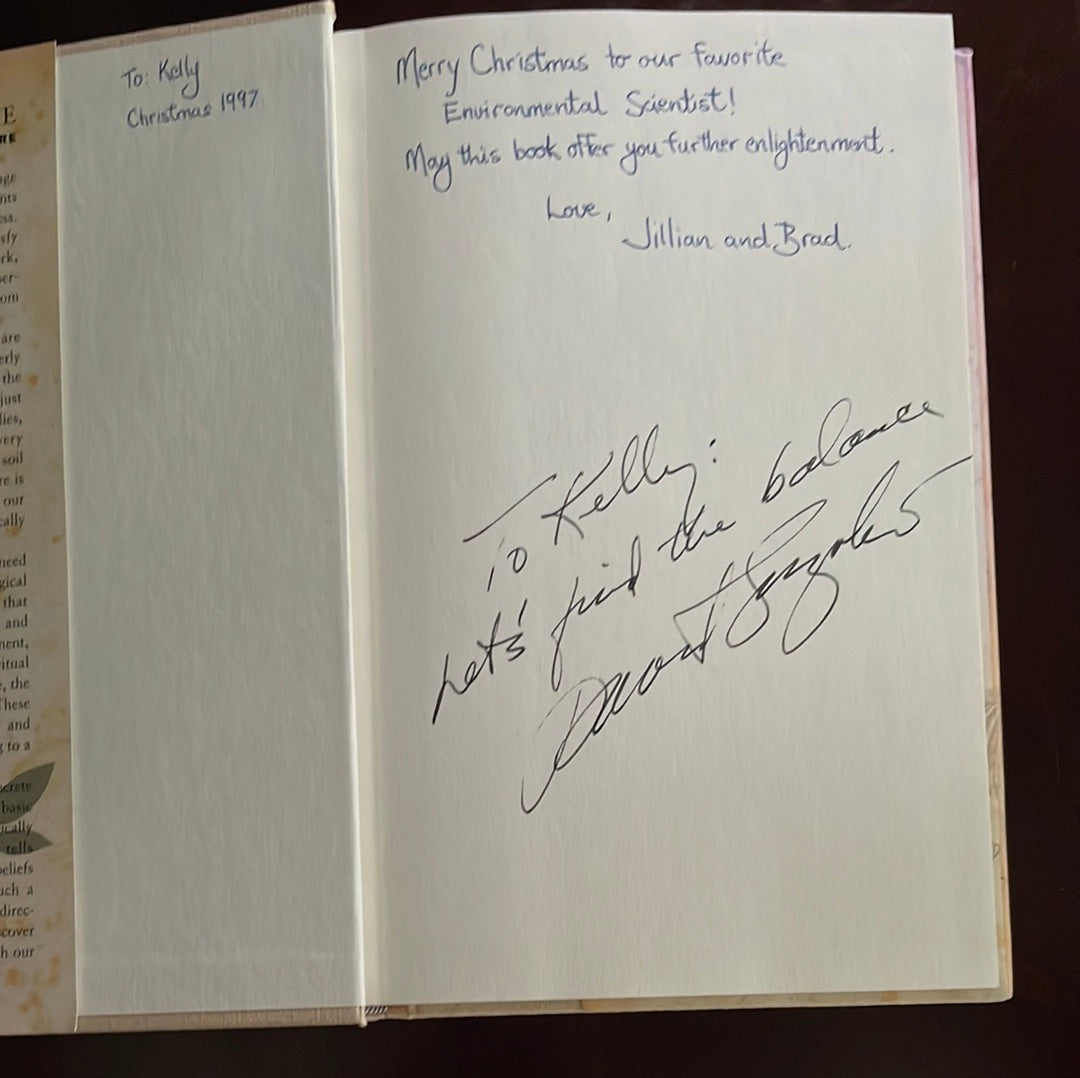 E
RE
are
the
just
lies,
very
soil
re is
our
cally
need
gical
that
and
ment,
ritual
, the
These
and
g to a
crete
basic
ically
tells
eliefs
uch a
direc-
scover
h our
To: Kelly
Christmas 1997
Merry Christmas to our favorite
Environmental Scientist!
May this book offer you further enlightenment.
Love,
Jillian and Brad.
To Kelly:
Let's find the balance
David T Suzuki